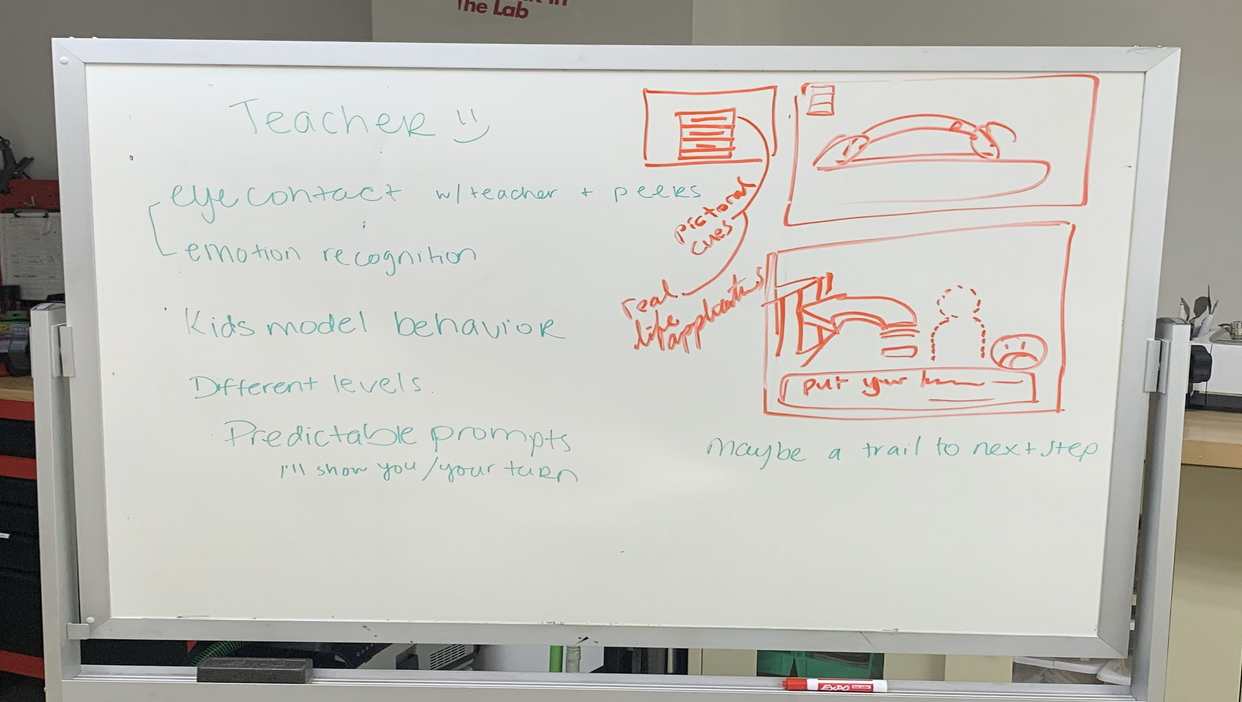 The Lab
Teacher
eye contact w/teacher + peers
emotion recognition
Kids model behavior
Different levels.
Predictable prompts
I'll show you/your turn
pictoral
cues
real
life
applications
put your
Maybe a trail to next step
EXPO